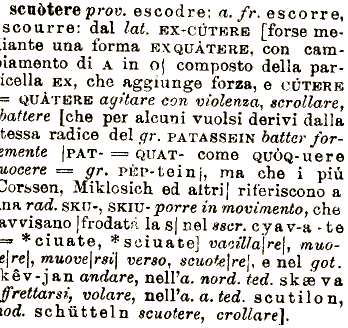 scuòtere prov. escodre; a. fr. escorre,
scourre: dal lat. EX-CÚTERE [forse me-
iante una forma EXQUÀTERE, con cam-
piamento di A in o] composto della par-
icella EX, che aggiunge forza, e CÚTERE
= QUÀTERE agitare con violenza, scrollare,
battere [che per alcuni vuolsi derivi dalla
tessa radice del gr. PATASSEIN batter for-
emente |PAT- = QUAT- come QUÒQ-uere
uocere = gr. PÈP-tein|, ma che i piú
Corssen, Miklosich ed altri| riferiscono a
na rad. SKU-, SKIU- porre in movimento, che
avvisano |frodata la s| nel sscr. cyav-a-te
= *ciuate, *sciuate] vacilla|re|, muo-
e|re|, muove|rsi| verso, scuote|re|, e nel got.
kêv-jan andare, nell'a. nord. ted. skæva
ffrettarsi, volare, nell'a. a. ted. scutilon,
nod. schütteln scuotere, crollare].